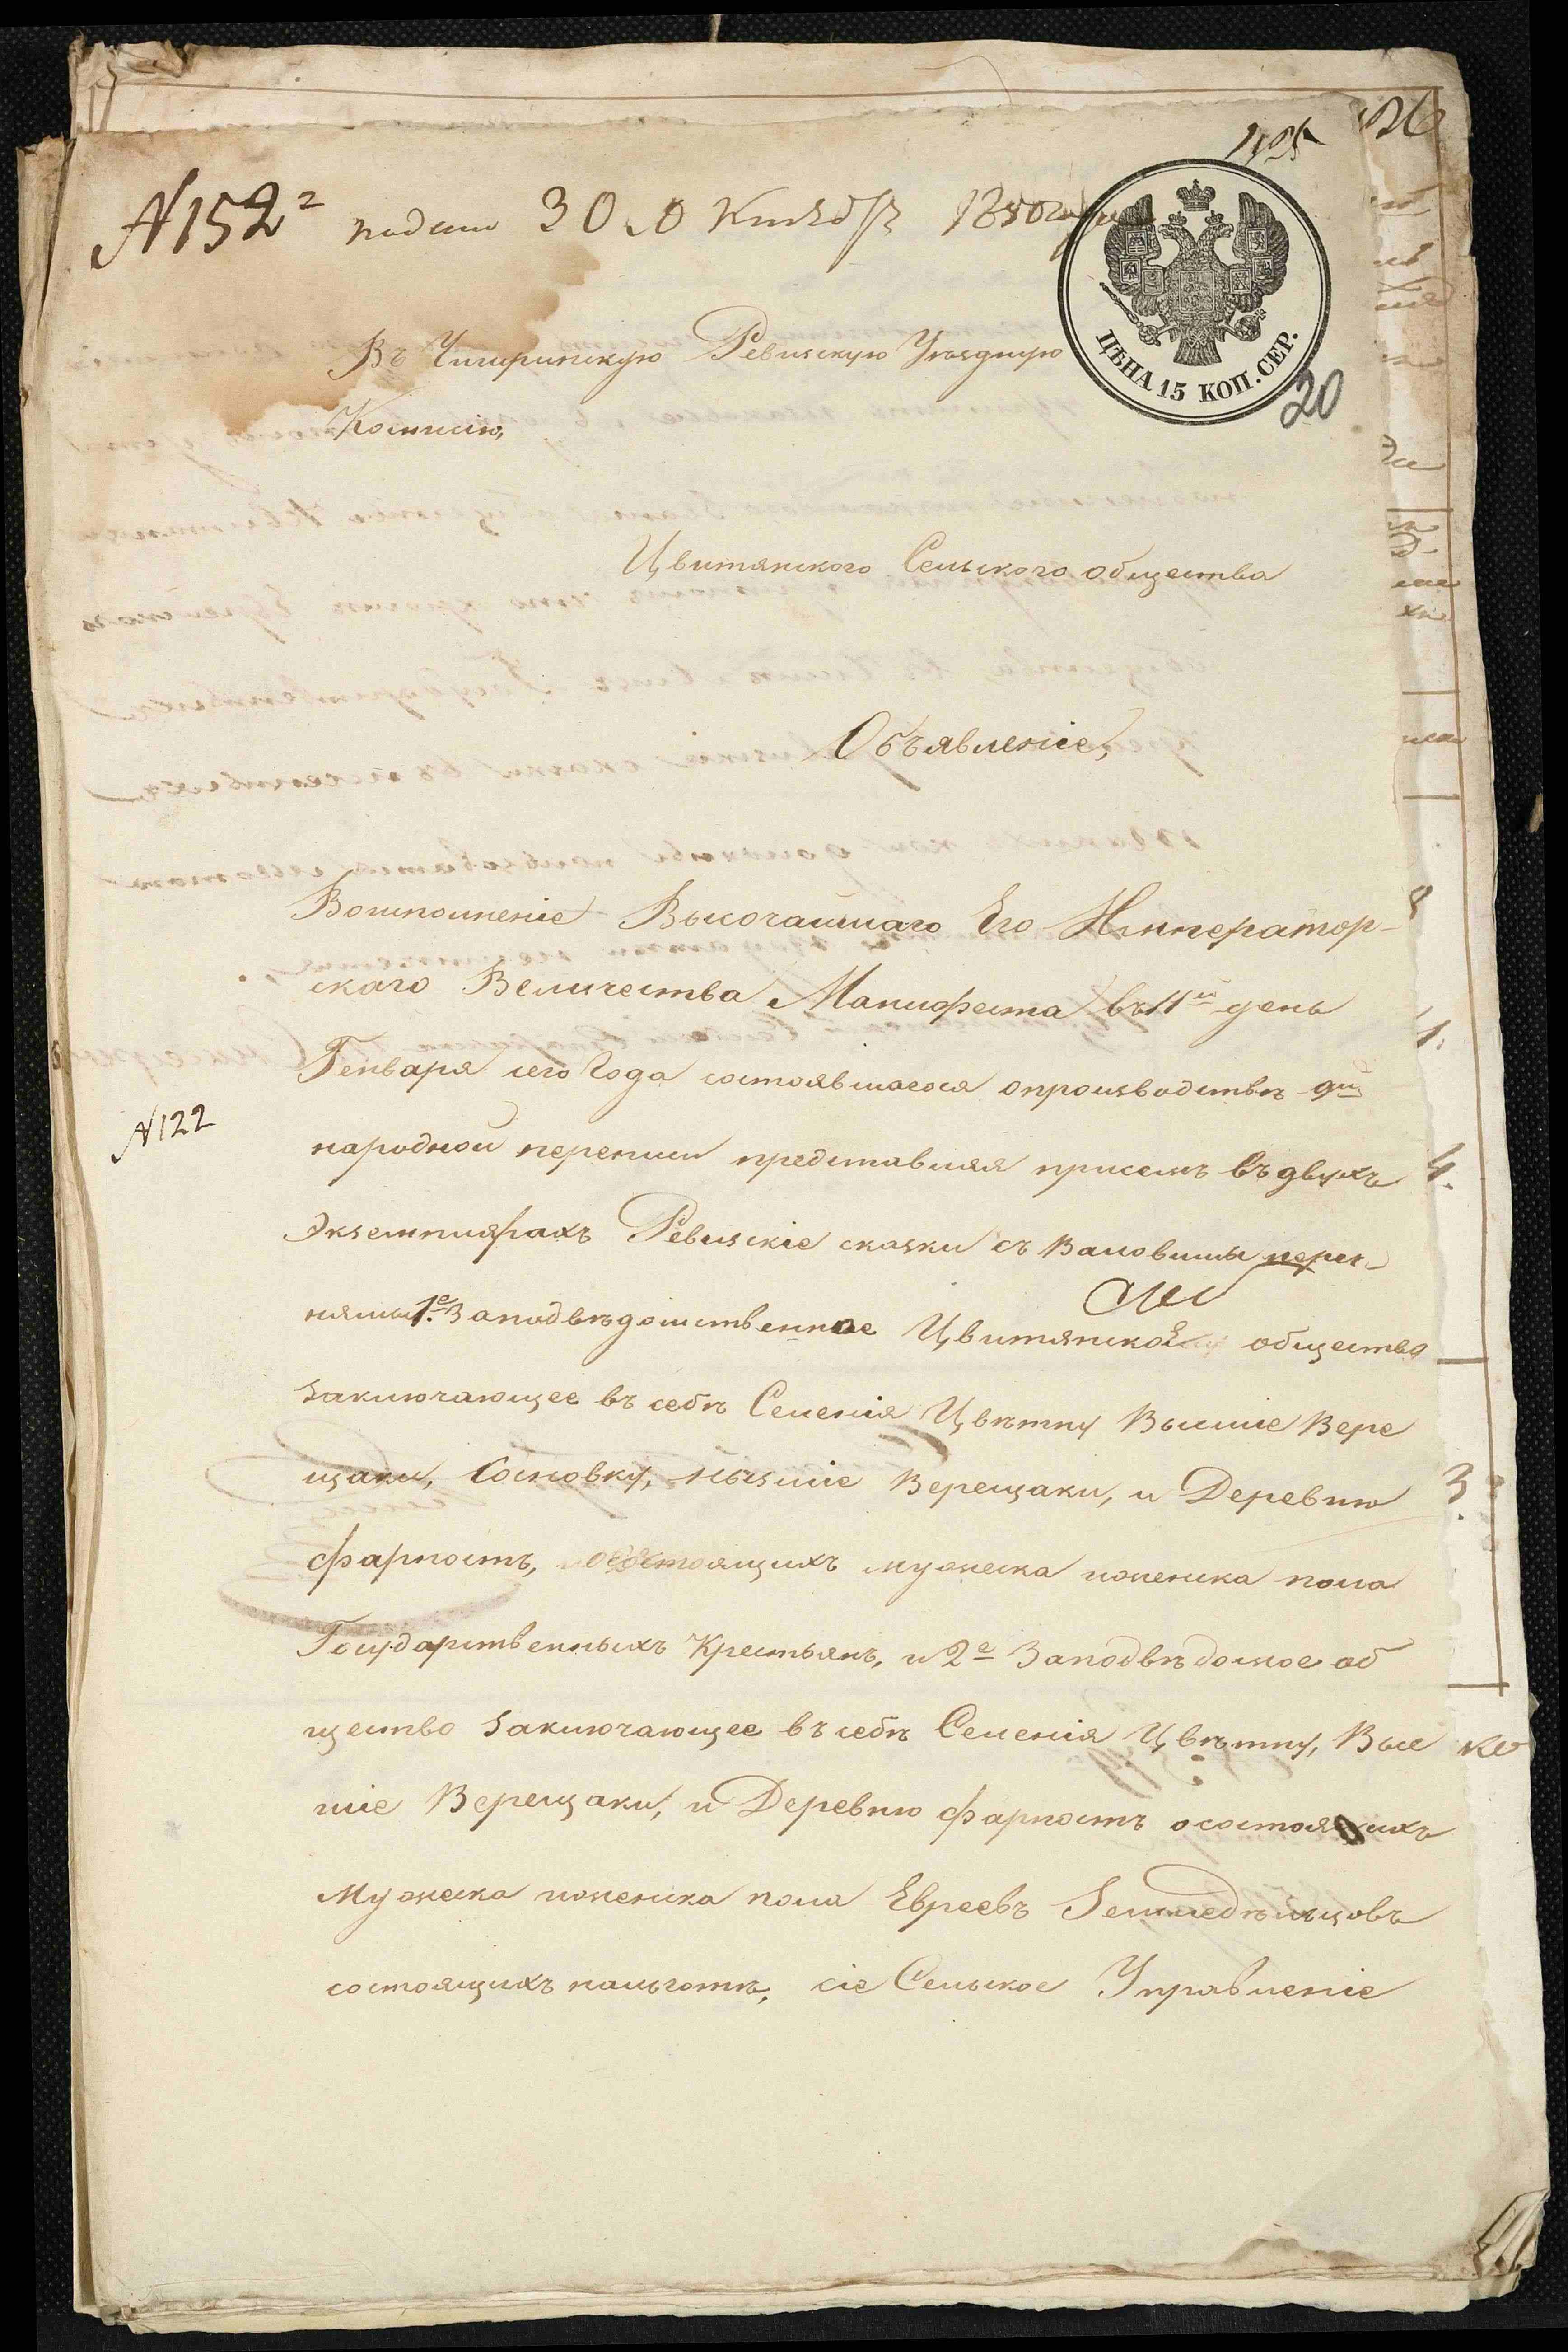 126
195
№152² подано 30 Октября 1850 года
ЦѢНА 15 КОП. СЕР.
20
Въ Чигиринскую Ревизскую Уѣздную
Комисію,
Цвитянского Сельского общества
Объявленіе,
Восполненіе Высочайшаго Его Император-
скаго Величества Манифеста въ 11й день
Генваря сего Года состоявшагося опроизводствѣ 9й
№122
народной переписи представляя присемъ въ двухъ
Экземплярахъ Ревизскіе сказки съ
1е Заподвѣдомственное Цвитянское общество
заключающее въ себѣ Селенія Цвѣтну Высшіе Вере
щаки, Сосновку, Нызшіе Верещаки, и Деревню
Фарпостъ, осостоящихъ мужеска иженска пола
Государственныхъ Крестьянъ, и 2е Заподвѣдомое об
щество заключающее въ себѣ Селенія Цвѣтну, Выс
шіе Верещаки, и Деревню Фарпостъ осостоящихъ
Мужеска иженска пола Евреевъ Земледѣльцовъ
состоящихъ нальготѣ, сіе Сельское Управленіе